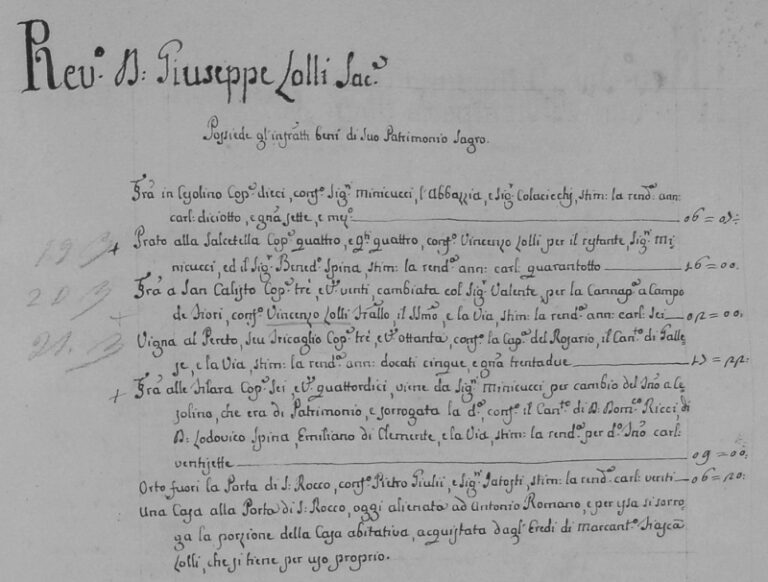 Rev.º D: Giuseppe Lolli Sac.e
Possiede gl'infratti beni di suo Patrimonio Sagro.
Trã in Cesolino Cop.e dieci, conf.º Sig.ri Minicucci, l'Abbazzia, e Sig.r Colaciechi, stim: la rend.ª ann:
carl: diciotto, e gñã sette, e mez.º 06 =
19 3 + Prato alla Salcetella Cop.e quattro, e q.ti quattro, conf.º Vincenzo Lolli per il restante, Sig.ri Mi-
nicucci, ed il Sig.r Bened.º Spina, stim: la rend.ª ann: carl: quarantotto 16 = 00.
20 3 Trã a San Calisto Cop.e trè, e V.e venti, cambiata col Sig.r Valente, per la Cannap.ª a Campo
+ de Fiori, conf.º Vincenzo Lolli Frãllo, il SSmo, e la Via, stim: la rend.ª ann: carl: sei 02 = 00.
21. 3 Vigna al Pereto, seu Tricaglio Cop.e trè, e V.e ottanta, conf.º la Cap.ª del Rosario, il Can.co di Falle-
se, e la Via, stim: la rend.ª ann: docati cinque, e gñã trentadue 17 = 22:
+ Trã alle Filara Cop.e sei, e V.e quattordici, viene da Sig.ri Minicucci per cambio del Tñõ a Ce-
solino, che era di Patrimonio, e sorrogata la d.ª, conf.º il Can.co di D: Dom.co Ricci, di
D: Lodovico Spina, Emiliano di Clemente, e la Via, stim: la rend.ª per d.º Tñõ carl:
ventisette 09 = 00:
Orto fuori la Porta di S: Rocco, conf.º Pietro Giulii, e Sig.ri Fatosti, stim: la rend.ª carl: venti 06 = 20:
Una Casa alla Porta di S: Rocco, oggi alienata ad Antonio Romano, e per essa si sorro-
ga la porzione della Casa abitativa, acquistata dagl'Eredi di Marcant.º
Lolli, che si tiene per uso proprio.